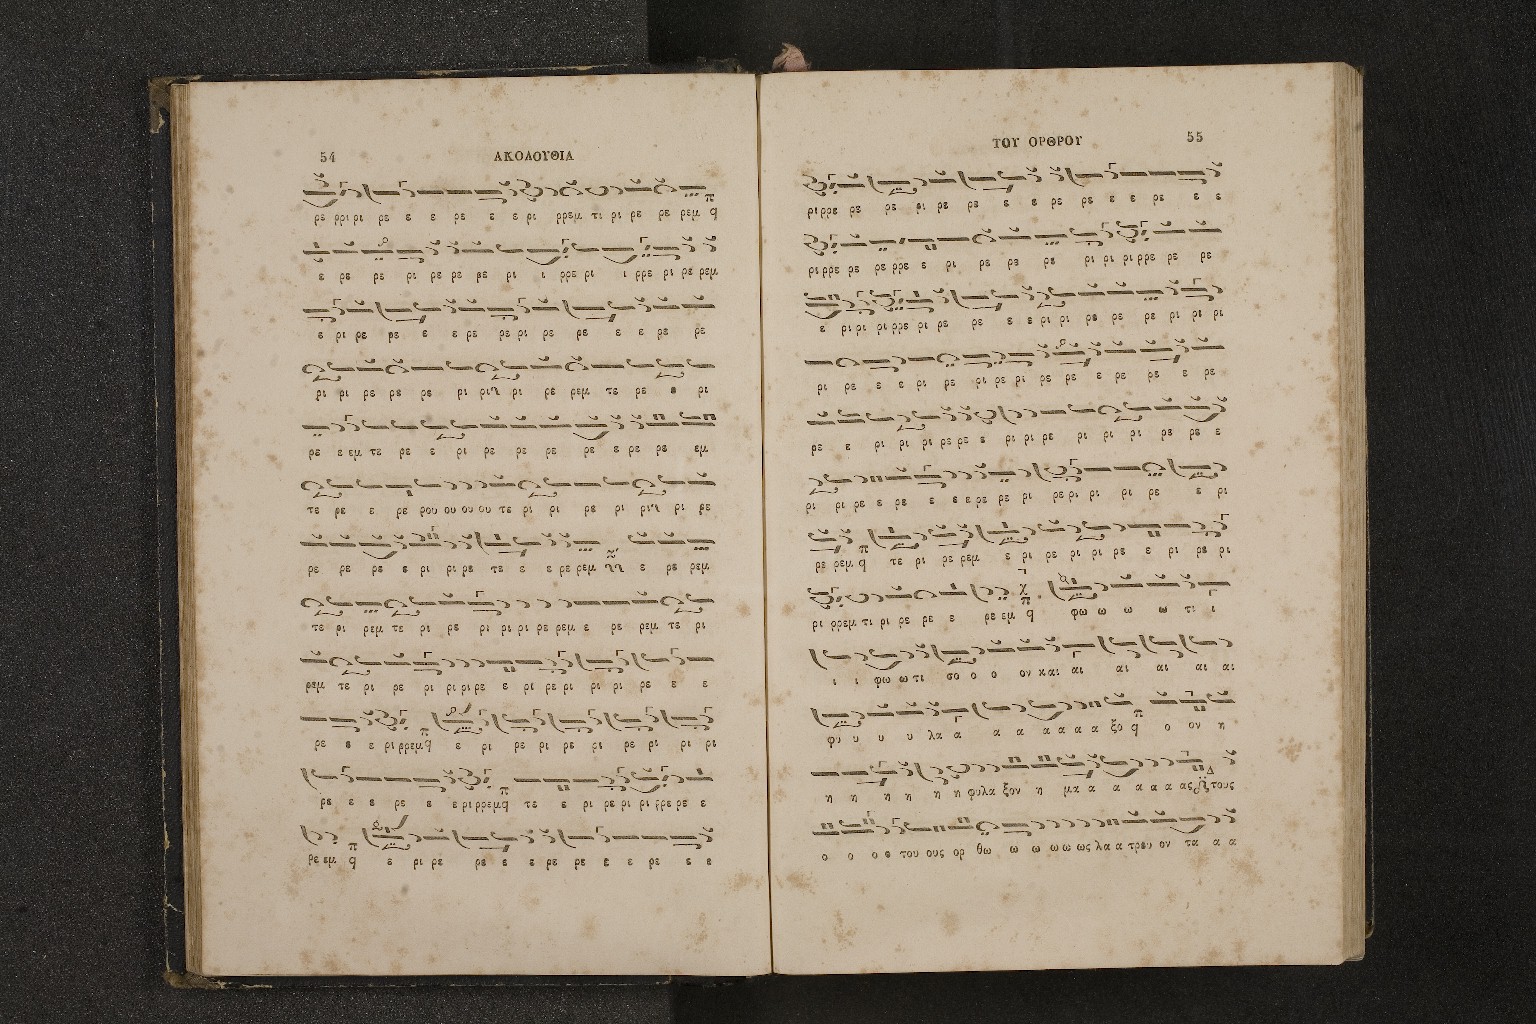 54 ΑΚΟΛΟΥΘΙΑ
ρε ρρι ρι ρε ε ε ρε ε ε ρι ρρεμ τι ρι ρε ρε ρεμ q
ε ρε ρε ρι ρε ρε ρε ρι ι ρρε ρι ι ρρε ρι ρε ρεμ
ε ρι ρε ρε ε ε ρε ρε ρι ρε ρε ε ε ρε ρε
ρι ρι ρε ρε ρε ρι ρι ρι ρε ρεμ τε ρε ε ρι
ρε ε εμ τε ρε ε ρι ρε ρε ρε ρε ε ρε ρε εμ
τε ρε ε ρε ρου ου ου ου τε ρι ρι ρε ρι ρι ρι ρε
ρε ρε ρε ε ρι ρι ρε τε ε ε ρε ρεμ ε ρε ρεμ
τε ρι ρεμ τε ρι ρε ρι ρι ρι ρε ρεμ ε ρε ρεμ τε ρι
ρεμ τε ρι ρε ρι ρι ρι ρε ε ρι ρε ρι ρι ρι ρε ε ε
ρε ε ε ρι ρρεμ q ε ρι ρε ρι ρε ρι ρε ρι ρι ρι
ρε ε ε ρε ε ε ρι ρρεμ q τε ε ρι ρε ρι ρι ρρε ρε ε
ρε εμ q ε ρι ρε ρε ε ε ρε ρε ε ε ρε ε ε
ΤΟΥ ΟΡΘΡΟΥ 55
ρι ρρε ρε ρε ρι ρε ρε ε ε ρε ρε ε ε ρε ε ε
ρι ρρε ρε ρε ρρε ε ρι ρε ρε ρε ρι ρι ρι ρρε ρε ρε
ε ρι ρι ρι ρρε ρι ρε ρε ε ε ρι ρι ρε ρε ρε ρι ρι ρι
ρι ρε ε ε ρι ρε ρι ρε ρι ρε ρε ε ρε ρε ε ρε
ρε ε ρι ρι ρι ρε ρε ε ρι ρι ρε ρι ρι ρι ρε ρε ε
ρι ρι ρε ε ρε ε ε ε ρε ρε ρι ρε ρι ρι ρι ρε ε ρι
ρε ρεμ q τε ρι ρε ρεμ ε ρι ρε ρι ρι ρε ε ρι ρε ρι
ρι ρρεμ τι ρι ρε ρε ε ρε εμ q φω ω ω ω τι ι
ι ι φω ω τι σο ο ο ον και αι αι αι αι αι
φυ υ υ υ λα α α α α α α α ξο q ο ον η
η η η η η η φυλα ξον η μα α α α α α ας τους
ο ο ο ε του ους ορ θω ω ω ω ω ως λα α τρευ ον τα α α